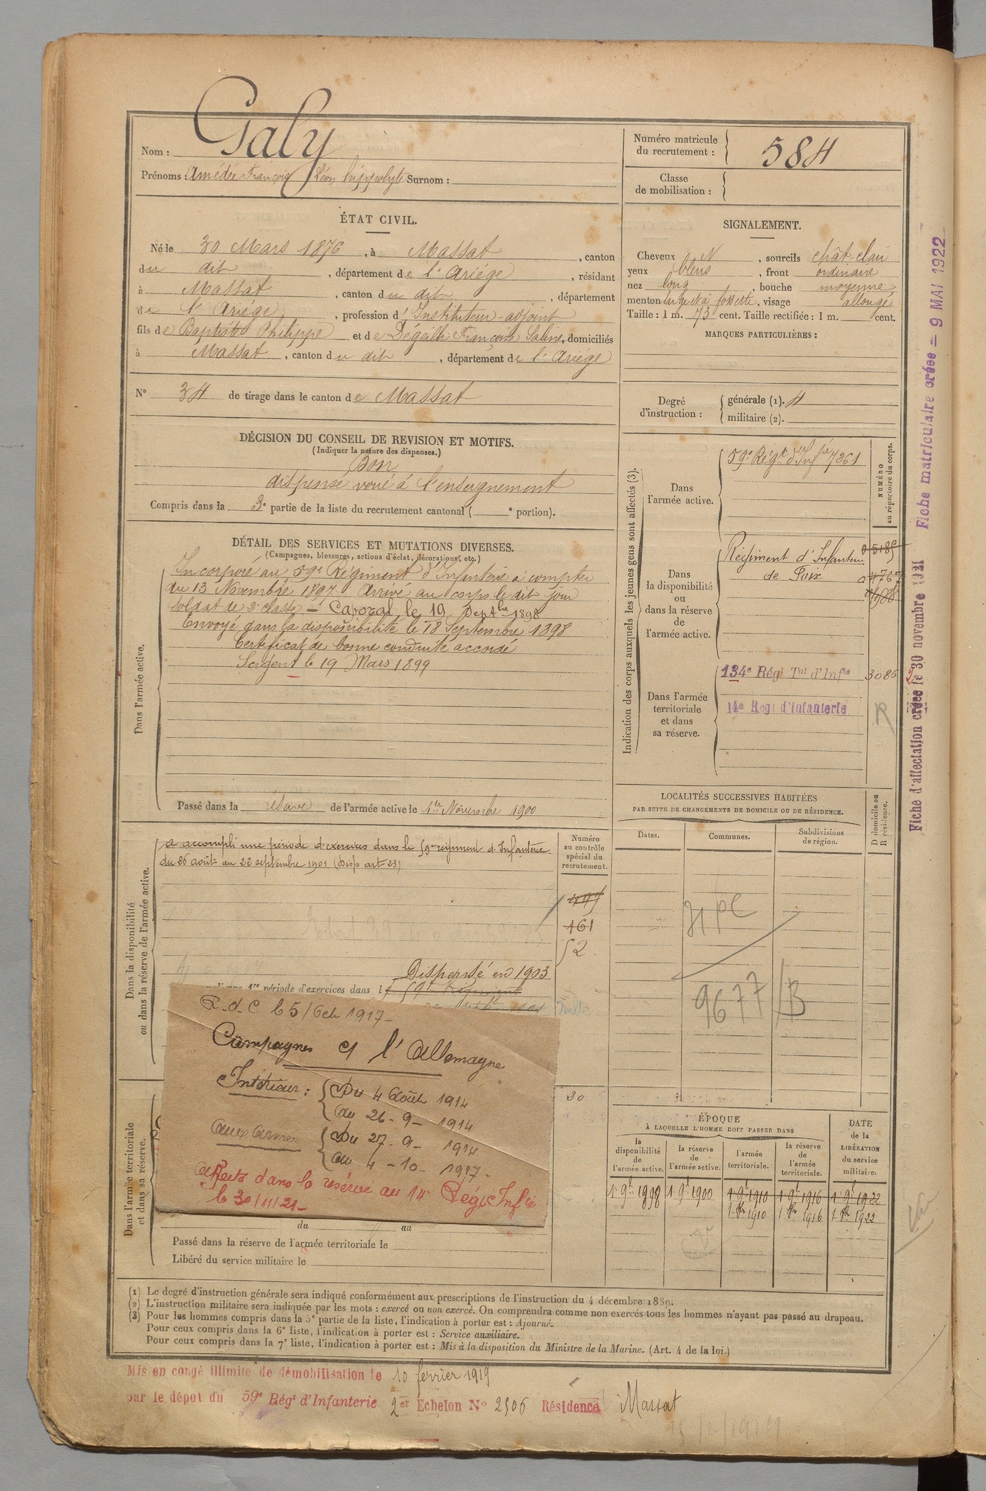 Nom : Galy
Prénoms : Amédée François Léon Hippolyte Surnom :
Numéro matricule du recrutement : 584
Classe de mobilisation :
ÉTAT CIVIL.
Né le 30 Mars 1876, à Massat, canton
du dit, département de l'Ariège, résidant
à Massat, canton du dit, département
de l'Ariège, profession d'Instituteur-adjoint
fils de Baptiste Philippe et de Dégath Françoise Sabine, domiciliés
à Massat, canton du dit, département de l'Ariège
N° 34 de tirage dans le canton de Massat
SIGNALEMENT.
Cheveux N, sourcils chât clair
yeux bleus, front ordinaire
nez long, bouche moyenne
menton à fossette, visage allongé
Taille : 1 m. 73 cent. Taille rectifiée : 1 m. cent.
MARQUES PARTICULIÈRES :
Degré d'instruction : générale (1). 4
militaire (2).
DÉCISION DU CONSEIL DE REVISION ET MOTIFS.
(Indiquer la nature des dispenses.)
Bon
dispensé voué à l'enseignement
Compris dans la 3e partie de la liste du recrutement cantonal ( e portion).
DÉTAIL DES SERVICES ET MUTATIONS DIVERSES.
(Campagnes, blessures, actions d'éclat, décorations, etc.)
Dans l'armée active.
Incorporé au 59e Régiment d'Infanterie à compter
du 13 Novembre 1897. Arrivé au corps le dit jour
soldat de 2e classe — Caporal le 19 Septbre 1898
Envoyé dans la disponibilité le 18 Septembre 1898
Certificat de bonne conduite accordé
Sergent le 19 Mars 1899
Passé dans la réserve de l'armée active le 1er Novembre 1900
Indication des corps auxquels les jeunes gens sont affectés (3).
NUMÉRO au répertoire du corps.
Dans l'armée active.
59e Régt d'Infie 7261
Dans la disponibilité ou dans la réserve de l'armée active.
Régiment d'Infanterie
de Foix
Dans l'armée territoriale et dans sa réserve.
134e Régt Tal d'Infie 3086
14e Regt d'Infanterie
R
LOCALITÉS SUCCESSIVES HABITÉES
PAR SUITE DE CHANGEMENTS DE DOMICILE OU DE RÉSIDENCE.
Dates.
Communes.
Subdivisions de région.
D domicile ou R résidence.
9677 B
Dans la disponibilité ou dans la réserve de l'armée active.
A accompli une période d'exercices dans le 59e régiment d'Infanterie
du 26 août au 22 septembre 1901 (Disp art 23)
Numéro au contrôle spécial du recrutement.
161
52
Dispensé en 1903
période d'exercices dans le 59e Régiment
R.d.C le 5/Oct 1917-
Campagnes ct l'Allemagne
Intérieur : Du 4 Août 1914
au 26-9-1914
aux armées Du 27-9-1914
au 4-10-1917-
affecté dans la réserve au 14e Régt Infie
le 30/11/21-
Dans l'armée territoriale et dans sa réserve.
du au
Passé dans la réserve de l'armée territoriale le
Libéré du service militaire le
ÉPOQUE
À LAQUELLE L'HOMME DOIT PASSER DANS
la disponibilité de l'armée active.
la réserve de l'armée active.
l'armée territoriale.
la réserve de l'armée territoriale.
DATE de la LIBÉRATION du service militaire.
1 9bre 1898 1 9bre 1900 1 9bre 1910 1 9bre 1916 1 9bre 1922
1910 1916 1922
(1) Le degré d'instruction générale sera indiqué conformément aux prescriptions de l'instruction du 4 décembre 1889.
(2) L'instruction militaire sera indiquée par les mots : exercé ou non exercé. On comprendra comme non exercés tous les hommes n'ayant pas passé au drapeau.
(3) Pour les hommes compris dans la 5e partie de la liste, l'indication à porter est : Ajourné.
Pour ceux compris dans la 6e liste, l'indication à porter est : Service auxiliaire.
Pour ceux compris dans la 7e liste, l'indication à porter est : Mis à la disposition du Ministre de la Marine. (Art. 4 de la loi.)
Mis en congé illimité de démobilisation le 10 février 1919
par le dépôt du 59e Régt d'Infanterie 2er Echelon N° 2506 Résidence Massat
Fiche d'affectation créée le 30 novembre 1921 Fiche matriculaire créée = 9 MAI 1922